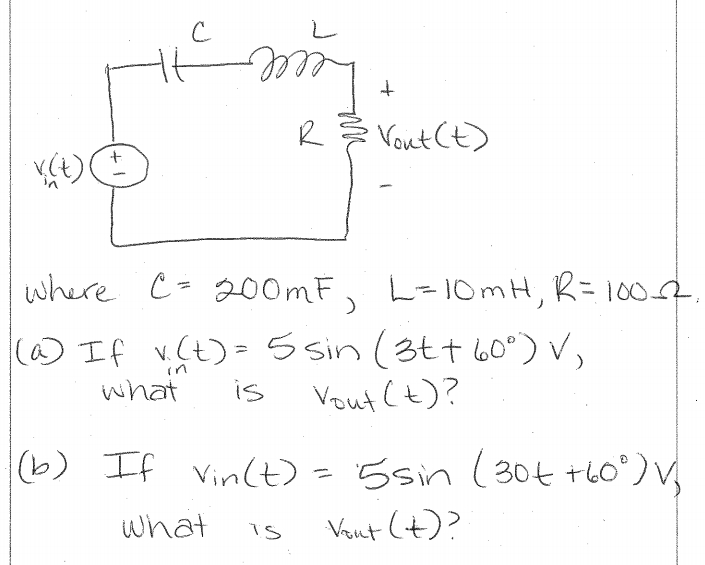 C L
+
R Vout(t)
vin(t) +
-
-
where C = 200mF, L=10mH, R=100Ω.
(a) If vin(t) = 5 sin (3t+60°) V,
what is Vout(t)?
(b) If Vin(t) = 5sin (30t +60°) V,
what is Vout(t)?